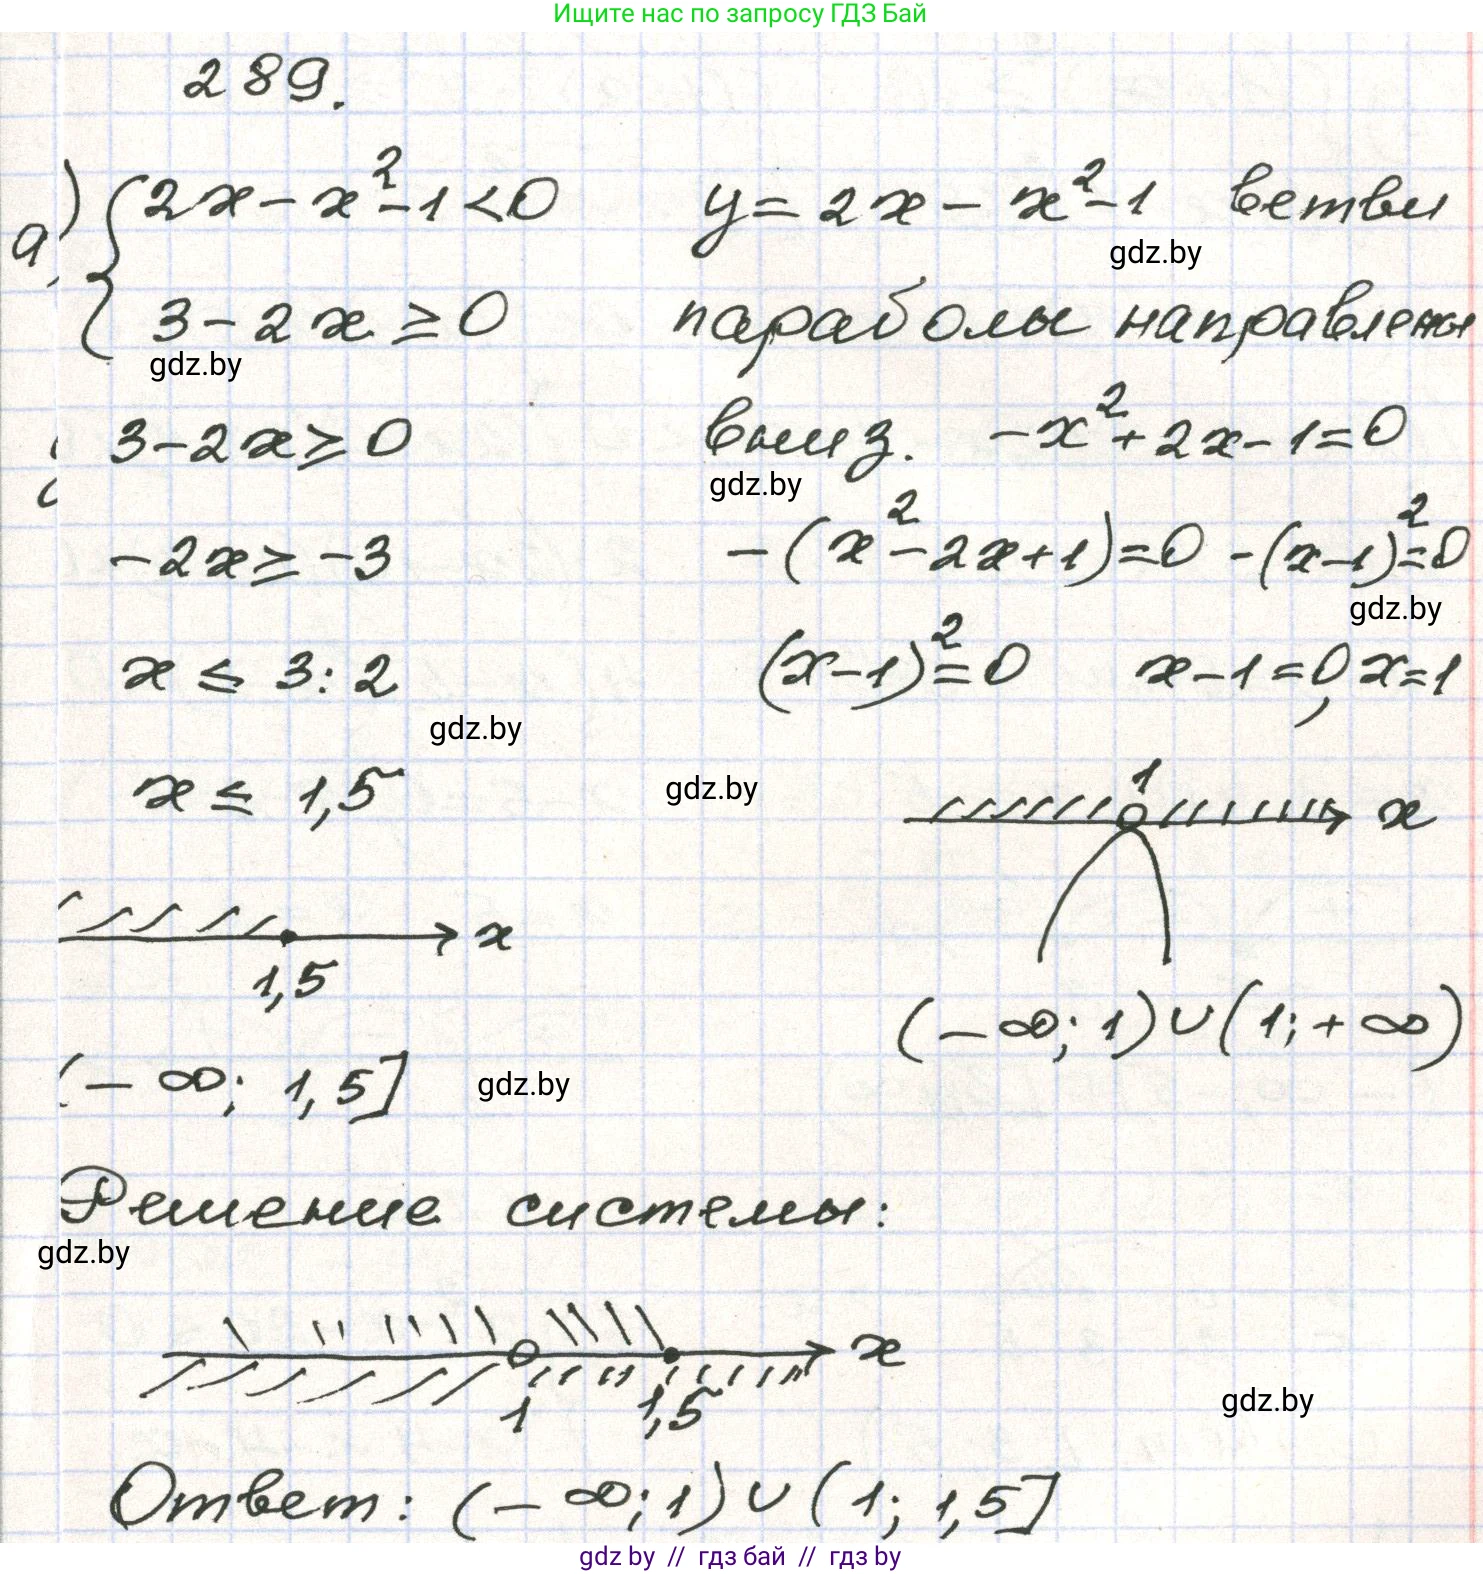 Ищите нас по запросу ГДЗ Бай
289.
а) { 2x - x² - 1 < 0
3 - 2x ≥ 0
gdz.by
3 - 2x ≥ 0
-2x ≥ -3
x ≤ 3 : 2
gdz.by
x ≤ 1,5
x
1,5
(-∞; 1,5]
gdz.by
y = 2x - x² - 1 ветви
gdz.by
параболы направлены
вниз. -x² + 2x - 1 = 0
gdz.by
-(x² - 2x + 1) = 0 -(x-1)² = 0
gdz.by
(x-1)² = 0 x - 1 = 0, x = 1
gdz.by
1
x
(-∞; 1) ∪ (1; +∞)
Решение системы:
gdz.by
x
1 1,5
gdz.by
Ответ: (-∞; 1) ∪ (1; 1,5]
gdz by // гдз бай // гдз by